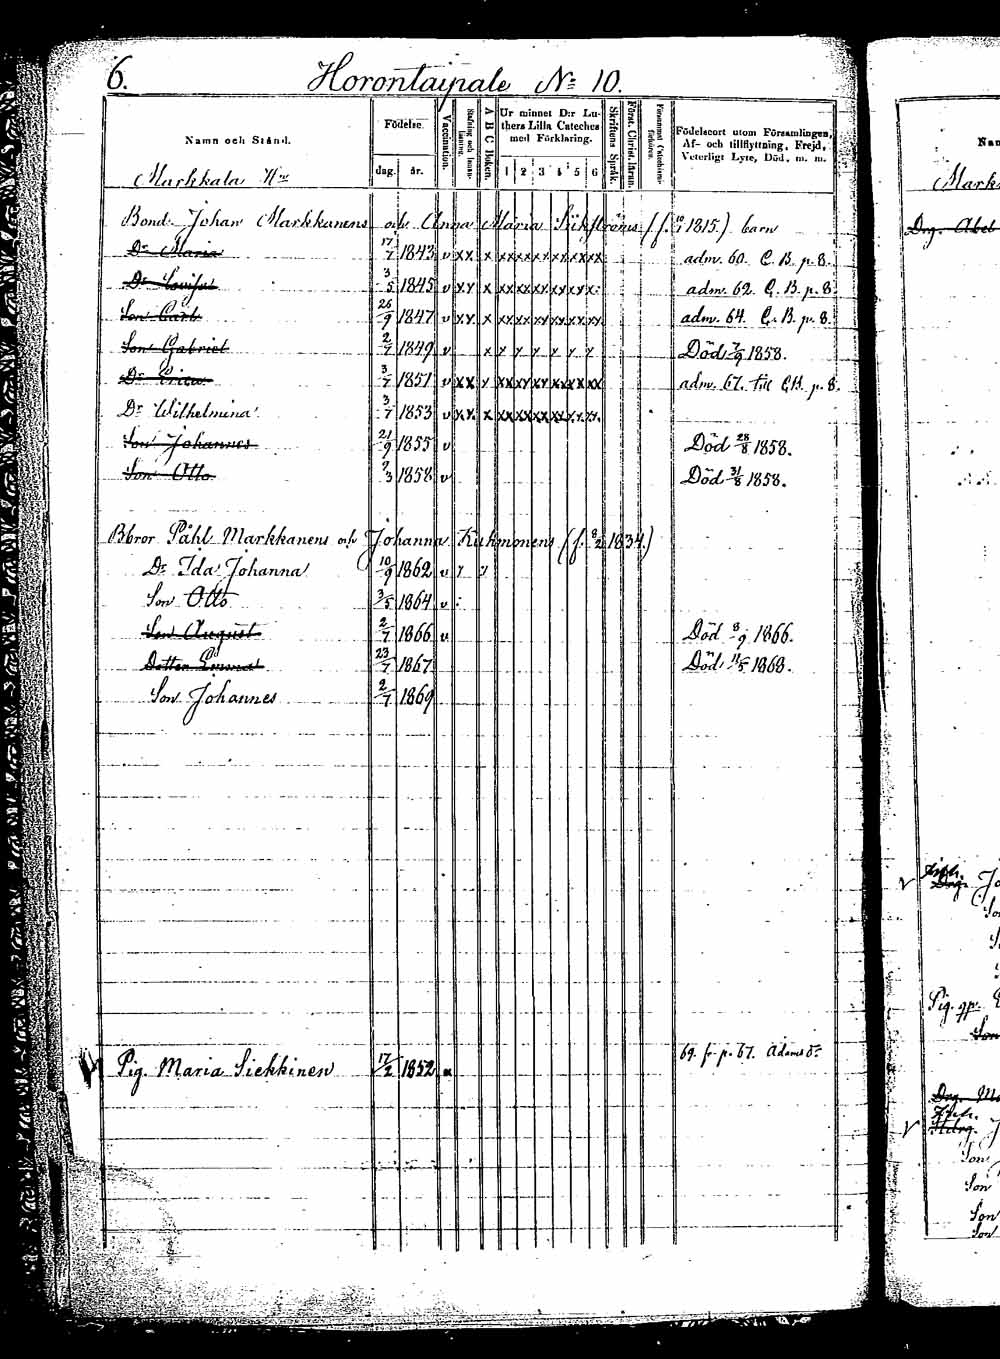 6. Horontaipale No 10.
Namn och Stånd.
Födelse
dag. år.
Vaccination.
Stafning och Innanläsning.
A B C Boken.
Ur minnet D:r Luthers Lilla Cateches med Förklaring.
1 2 3 4 5 6
Skriftens Språk.
Först. Christ. läran.
Försummat Catechismiförhören.
Födelseort utom Församlingen, Af- och tillflyttning, Frejd, Veterligt Lyte, Död, m. m.
Markkala
Bond. Johan Markkanens och Anna Maria (f. 10/1 1815.) barn
Dr Maria 17/7 1843 v xx x xx xx xx xx xx xx adm. 60. C. B. p. 8.
Dr Lovisa 3/5 1845 v xx x xx xx xx xx xx x. adm. 62. C. B. p. 8
Son Carl 26/9 1847 v xx x xx xx xx xx xx xx adm. 64. C. B. p. 8.
Son Gabriel 2/7 1849 v x y y y y y y Död 7/9 1858.
Dr Erica 3/7 1851 v xx y xx xy xy xx xx xx adm. 67. till C.B. p. 8.
Dr Wilhelmina 3/7 1853 v xx x xx xx xx xx xx xx
Son Johannes 21/9 1855 v Död 28/8 1858.
Son Otto 7/3 1858 v Död 31/8 1858.
Bbror Påhl Markkanens och Johanna Kukmonens (f. 8/2 1834.)
Dr Ida Johanna 10/9 1862 v y y
Son Otto 3/5 1864 v
Son August 2/7 1866 v Död 8/9 1866.
Dotter Emma 23/7 1867 Död 11/5 1868.
Son Johannes 2/7 1869
Pig. Maria Siekkinen 17/2 1852 69. fr p. 67. Adams dr
Drg. Abel
Pig.
Son
Son
Son
Son
Son